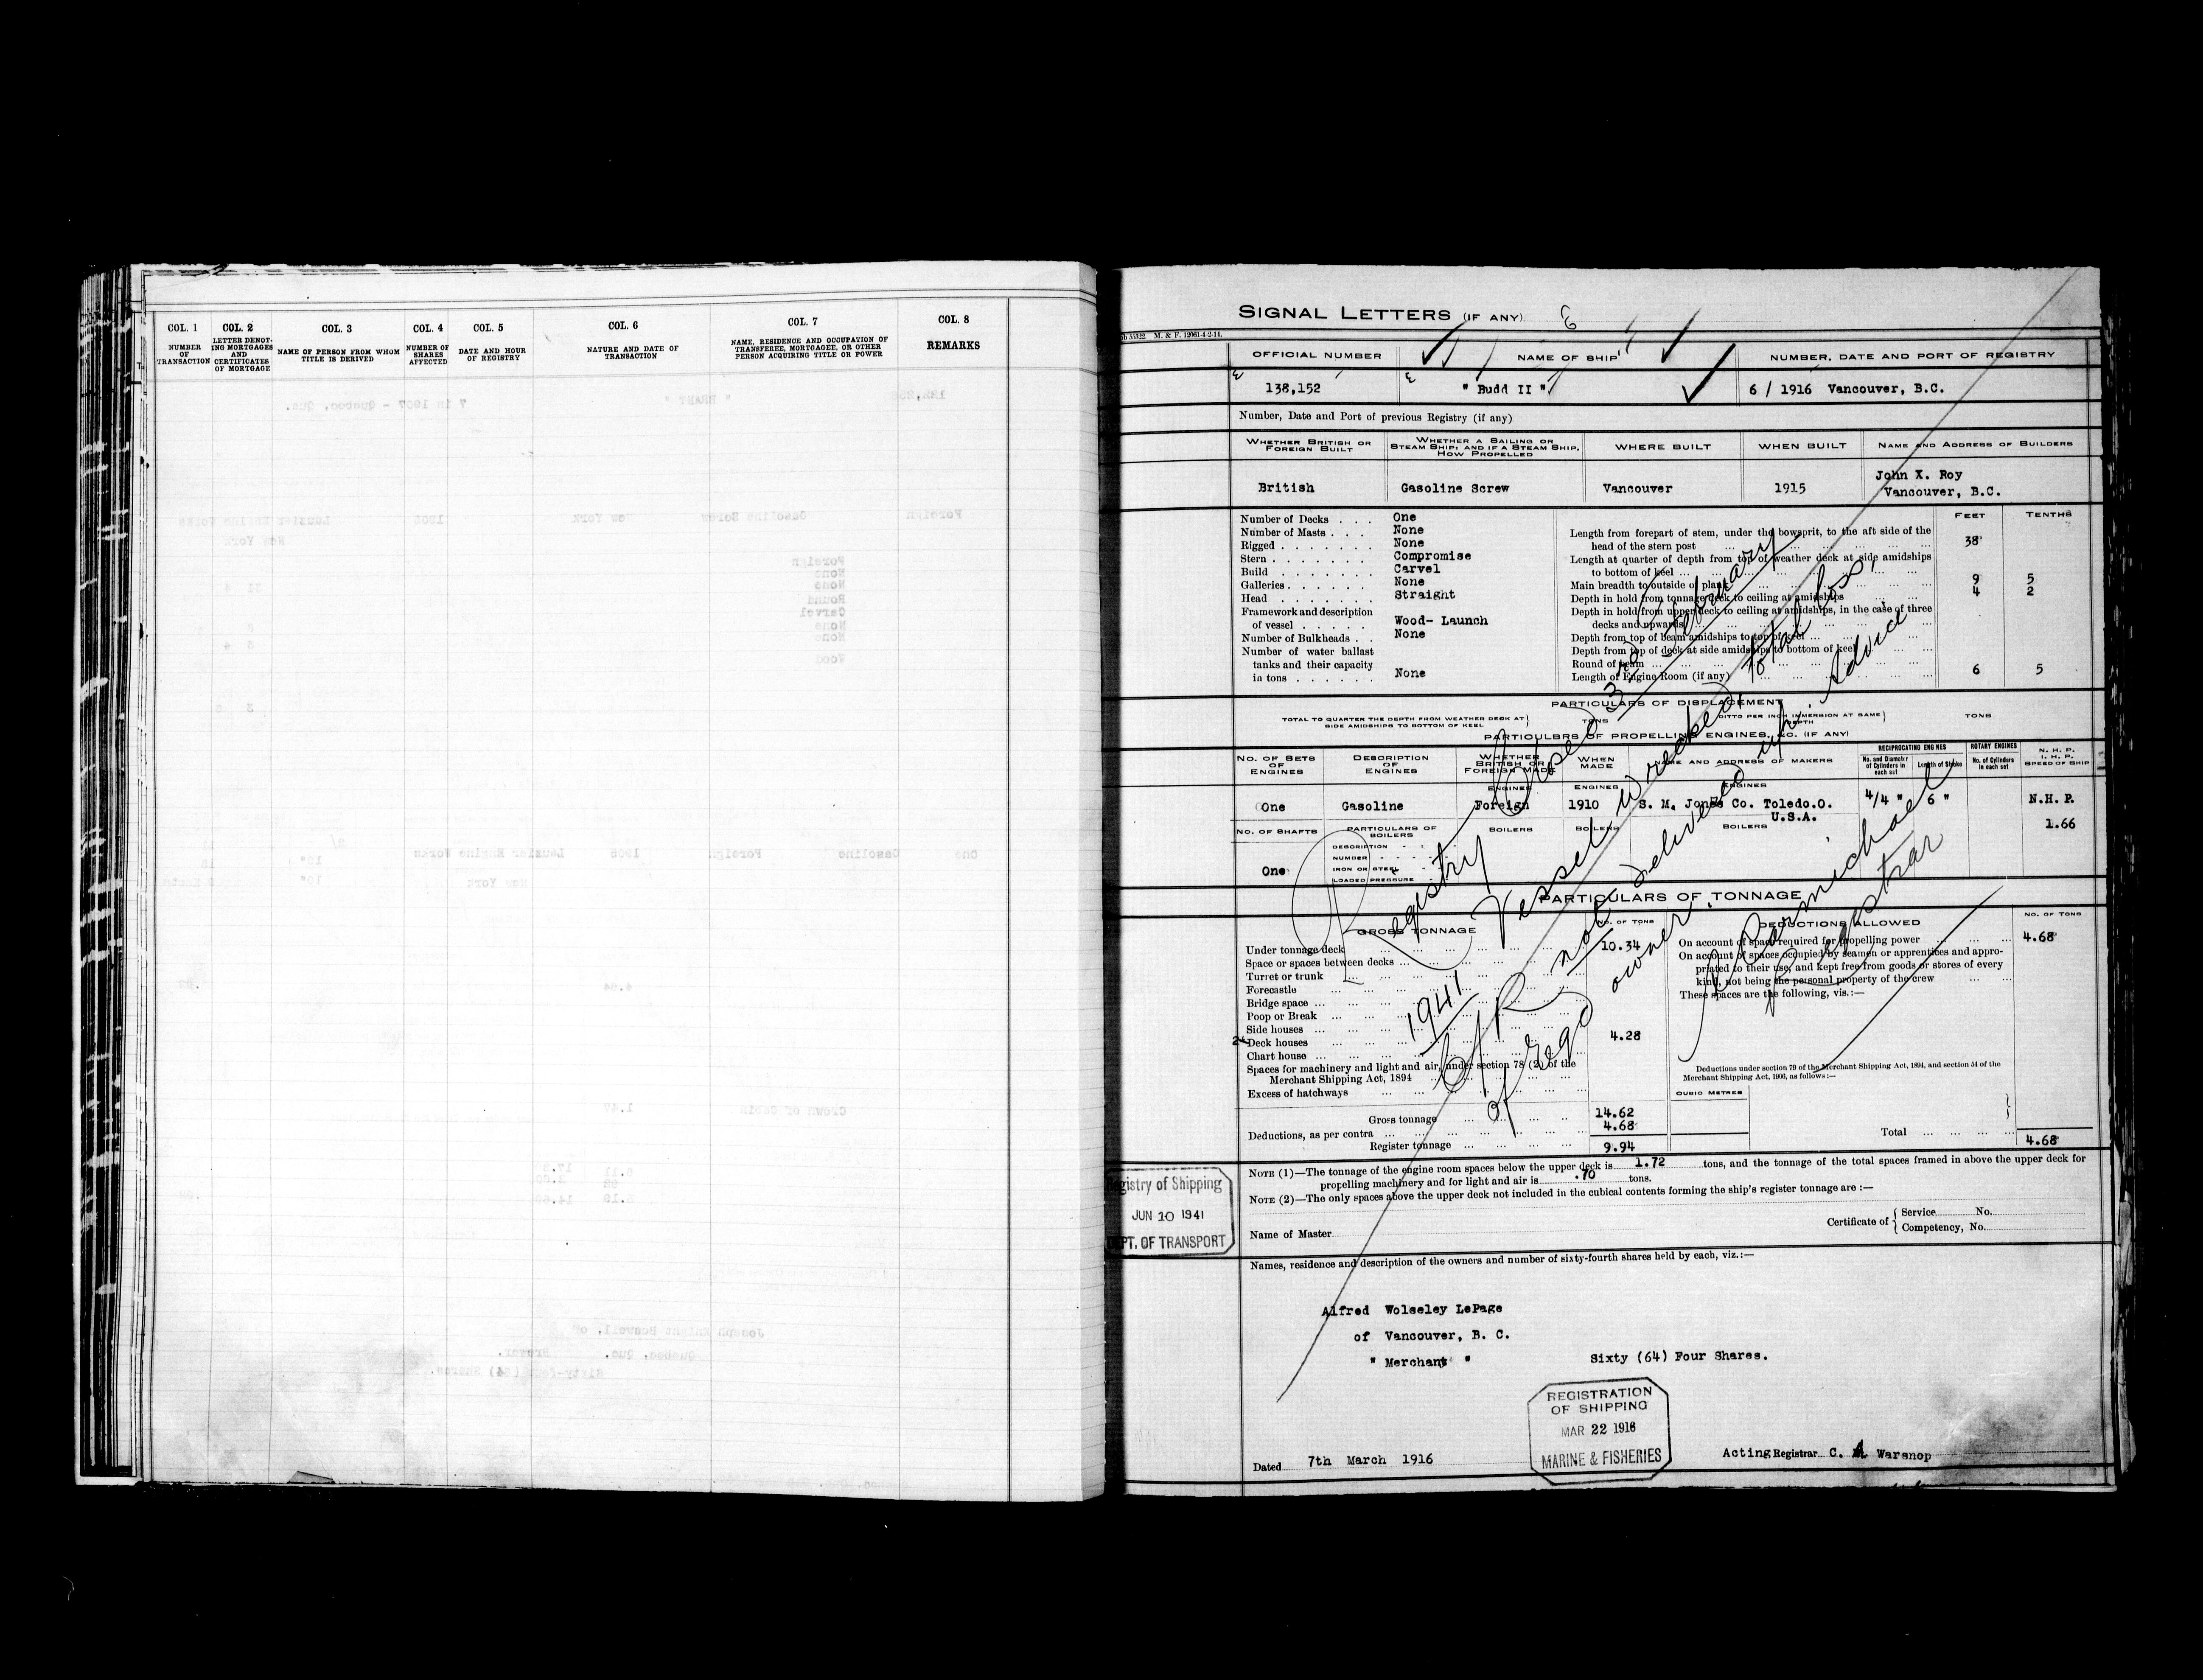 COL. 1
COL. 2
COL. 3
COL. 4
COL. 5
COL. 6
COL. 7
COL. 8
NUMBER OF TRANSACTION
LETTER DENOTING MORTGAGES AND CERTIFICATES OF MORTGAGE
NAME OF PERSON FROM WHOM TITLE IS DERIVED
NUMBER OF SHARES AFFECTED
DATE AND HOUR OF REGISTRY
NATURE AND DATE OF TRANSACTION
NAME, RESIDENCE AND OCCUPATION OF TRANSFEREE, MORTGAGEE, OR OTHER PERSON ACQUIRING TITLE OR POWER
REMARKS
SIGNAL LETTERS (IF ANY)
M. & F. 12061-4-2-14.
OFFICIAL NUMBER
NAME OF SHIP
NUMBER, DATE AND PORT OF REGISTRY
138,152
" Budd II "
6 / 1916 Vancouver, B.C.
Number, Date and Port of previous Registry (if any)
WHETHER BRITISH OR FOREIGN BUILT
WHETHER A SAILING OR STEAM SHIP; AND IF A STEAM SHIP, HOW PROPELLED
WHERE BUILT
WHEN BUILT
NAME AND ADDRESS OF BUILDERS
British
Gasoline Screw
Vancouver
1915
John X. Roy
Vancouver, B.C.
FEET
TENTHS
Number of Decks . . . One
Number of Masts . . . None
Rigged . . . . . . . None
Stern . . . . . . . . Compromise
Build . . . . . . . Carvel
Galleries . . . . . . None
Head . . . . . . . Straight
Framework and description
of vessel . . . . . Wood- Launch
Number of Bulkheads . . None
Number of water ballast
tanks and their capacity
in tons . . . . . . None
Length from forepart of stem, under the bowsprit, to the aft side of the
head of the stern post 38
Length at quarter of depth from top of weather deck at side amidships
to bottom of keel
Main breadth to outside of plank 9 5
Depth in hold from tonnage deck to ceiling at amidships 4 2
Depth in hold from upper deck to ceiling at amidships, in the case of three
decks and upwards
Depth from top of beam amidships to top of keel
Depth from top of deck at side amidships to bottom of keel
Round of beam
Length of Engine Room (if any) 6 5
PARTICULARS OF DISPLACEMENT
TOTAL TO QUARTER THE DEPTH FROM WEATHER DECK AT SIDE AMIDSHIPS TO BOTTOM OF KEEL
TONS
DITTO PER INCH IMMERSION AT SAME DEPTH
TONS
PARTICULBRS OF PROPELLING ENGINES, &C. (IF ANY)
NO. OF SETS OF ENGINES
DESCRIPTION OF ENGINES
WHETHER BRITISH OR FOREIGN MADE
WHEN MADE
NAME AND ADDRESS OF MAKERS
RECIPROCATING ENGINES
No. and Diameter of Cylinders in each set
Length of Stroke
ROTARY ENGINES
No. of Cylinders in each set
N. H. P.
I. H. P.
SPEED OF SHIP
ENGINES
ENGINES
ENGINES
One
Gasoline
Foreign
1910
S. M. Jones Co. Toledo.O.
U.S.A.
4/4 "
6 "
N.H.P.
1.66
NO. OF SHAFTS
PARTICULARS OF BOILERS
BOILERS
BOILERS
BOILERS
DESCRIPTION
NUMBER
IRON OR STEEL
LOADED PRESSURE
One
PARTICULARS OF TONNAGE
GROSS TONNAGE
NO. OF TONS
DEDUCTIONS ALLOWED
NO. OF TONS
Under tonnage deck 10.34
Space or spaces between decks
Turret or trunk
Forecastle
Bridge space
Poop or Break
Side houses
Deck houses 4.28
Chart house
Spaces for machinery and light and air, under section 78 (2) of the
Merchant Shipping Act, 1894
Excess of hatchways
Gross tonnage 14.62
Deductions, as per contra 4.68
Register tonnage 9.94
On account of space required for propelling power 4.68
On account of spaces occupied by seamen or apprentices and appro-
priated to their use, and kept free from goods or stores of every
kind, not being the personal property of the crew
These spaces are the following, vis.:—
Deductions under section 79 of the Merchant Shipping Act, 1894, and section 54 of the
Merchant Shipping Act, 1906, as follows:—
CUBIC METRES
Total 4.68
Registry Closed 3rd February
1941 Vessel Wrecked, total loss,
C/R not delivered up. Advice
of Regd owner.
Carmichael
Registrar
NOTE (1)—The tonnage of the engine room spaces below the upper deck is 1.72 tons, and the tonnage of the total spaces framed in above the upper deck for
propelling machinery and for light and air is .70 tons.
NOTE (2)—The only spaces above the upper deck not included in the cubical contents forming the ship's register tonnage are :—
Registry of Shipping
JUN 10 1941
DEPT. OF TRANSPORT
Name of Master
Certificate of { Service No.
Competency, No.
Names, residence and description of the owners and number of sixty-fourth shares held by each, viz.:—
Alfred Wolseley LePage
of Vancouver, B. C.
" Merchant "
Sixty (64) Four Shares.
REGISTRATION
OF SHIPPING
MAR 22 1916
MARINE & FISHERIES
Dated 7th March 1916
Acting Registrar C. A. Warsnop